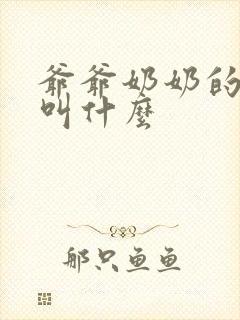 爷爷奶奶的
叫什麼
那只鱼鱼